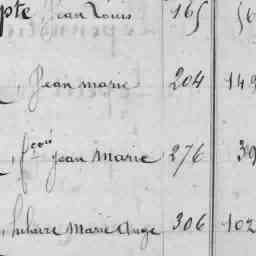 pte Jean Louis 165 56
, Jean marie 204 149
, fcois Jean Marie 276 39
, hilaire Marie Ange 306 102